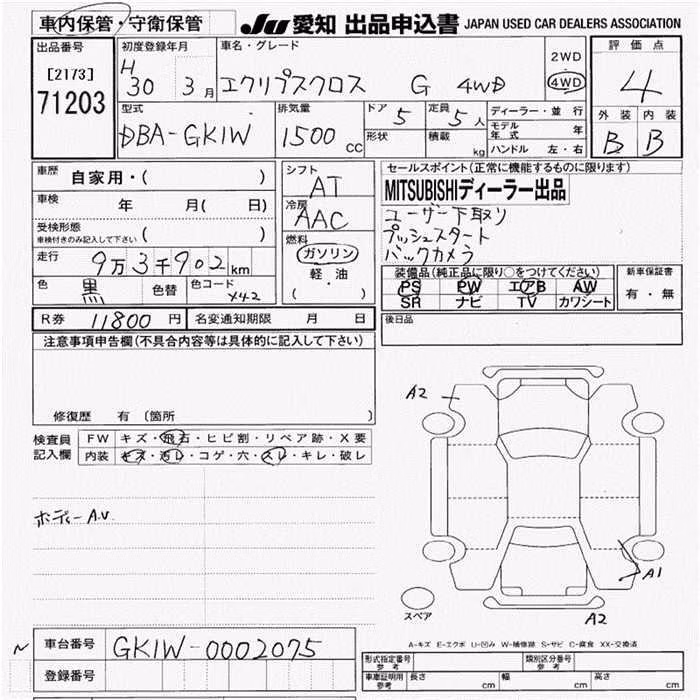 車内保管・守衛保管 JU 愛知 出品申込書 JAPAN USED CAR DEALERS ASSOCIATION
出品番号 初度登録年月 車名・グレード 2WD 評価点
[2173] H 30 3月 エクリプスクロス G 4WD 4WD 4
71203
型式 排気量 ドア 5 定員 5人 ディーラー・並行 外装 内装
DBA-GK1W 1500cc 形状 積載 kg モデル年式 年 B B
ハンドル 左・右
車歴 自家用・( ) シフト AT セールスポイント(正常に機能するものに限ります)
車検 年 月( 日) 冷房 AAC MITSUBISHIディーラー出品
受検形態 ( ) ユーザー下取り
車検付きのみ記入して下さい 燃料 プッシュスタート
走行 9万3千902km ガソリン バックカメラ
軽・油 装備品(純正品に限り○をつけてください) 新車保証書
色 黒 色替 色コード X42 ( ) PS PW エアB AW 有・無
SR ナビ TV カワシート
R券 11800円 名変通知期限 月 日 後日品
注意事項申告欄(不具合内容等は具体的に記入して下さい)
修復歴 有 〔箇所 〕
検査員 FW キズ・飛石・ヒビ割・リペア跡・X要
記入欄 内装 キズ・汚レ・コゲ・穴・スレ・キレ・破レ
A2
ボディーA.U.
A1
スペア A2
A-キズ E-エクボ U-凹み W-補修跡 S-サビ C-腐食 XX-交換済
車台番号 GK1W-0002075
登録番号
型式指定番号 参考 類別区分番号 参考
車庫証明用 参考 長さ cm 幅 cm 高さ cm